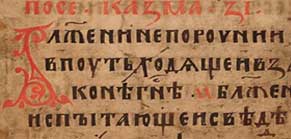 ПОСЕ · КАЗМА · ЗІ ·
БЛЖЕНИНЕПОРОЧНИИ
ВПОУТЬХОДѦЩЕИВЪЗА
КОНѢГНѢ · БЛЖЕН
ИСПЫТАЮЩЕИСВѢДѢ